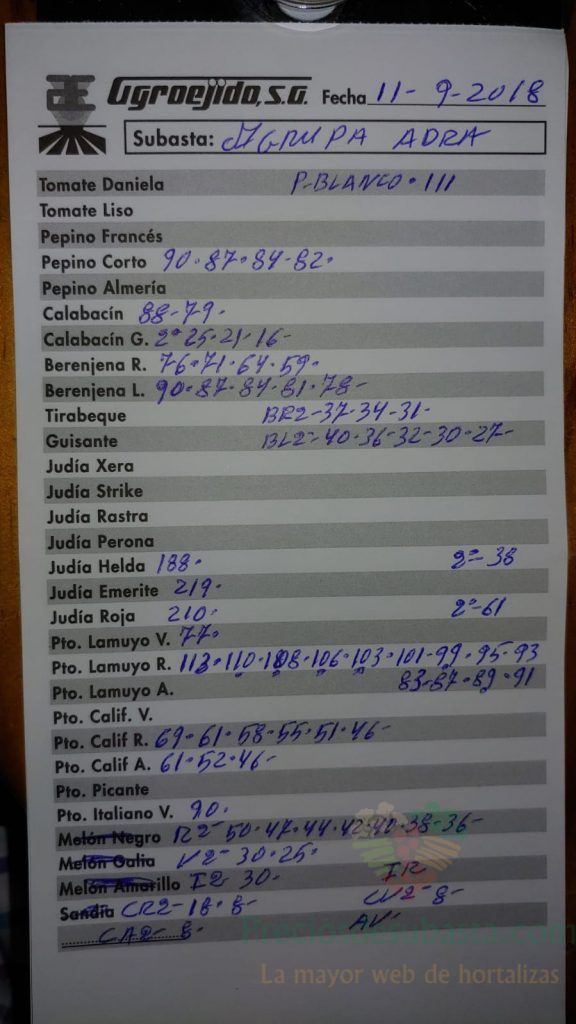 Agroejido, S.A. Fecha 11-9-2018
Subasta: AGRUPA ADRA
Tomate Daniela P-BLANCO·111
Tomate Liso
Pepino Francés
Pepino Corto 90·87·84-82·
Pepino Almería
Calabacín 88-79·
Calabacín G. 2ª 25-21-16-
Berenjena R. 76·71·64·59·
Berenjena L. 90·87·84·81·78-
Tirabeque BR2-37-34-31·
Guisante BL2-40·36-32-30·27-
Judía Xera
Judía Strike
Judía Rastra
Judía Perona
Judía Helda 188· 2ª-38
Judía Emerite 219·
Judía Roja 210· 2ª-61
Pto. Lamuyo V. 77·
Pto. Lamuyo R. 113·110·108·106·103·101-99·95-93
Pto. Lamuyo A. 83-87·89·91
Pto. Calif. V.
Pto. Calif R. 69·61·58-55·51·46-
Pto. Calif A. 61·52·46-
Pto. Picante
Pto. Italiano V. 90·
Melón Negro R2-50·47·44·42·40·38-36-
Melón Galia V2-30·25·
Melón Amarillo I2 30· IR
Sandía CR2-18·8- CV2-8-
CA2-8- AV-
Preciosdesubasta.com
La mayor web de hortalizas